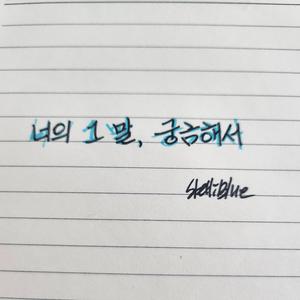 너의 1 말, 궁금해서